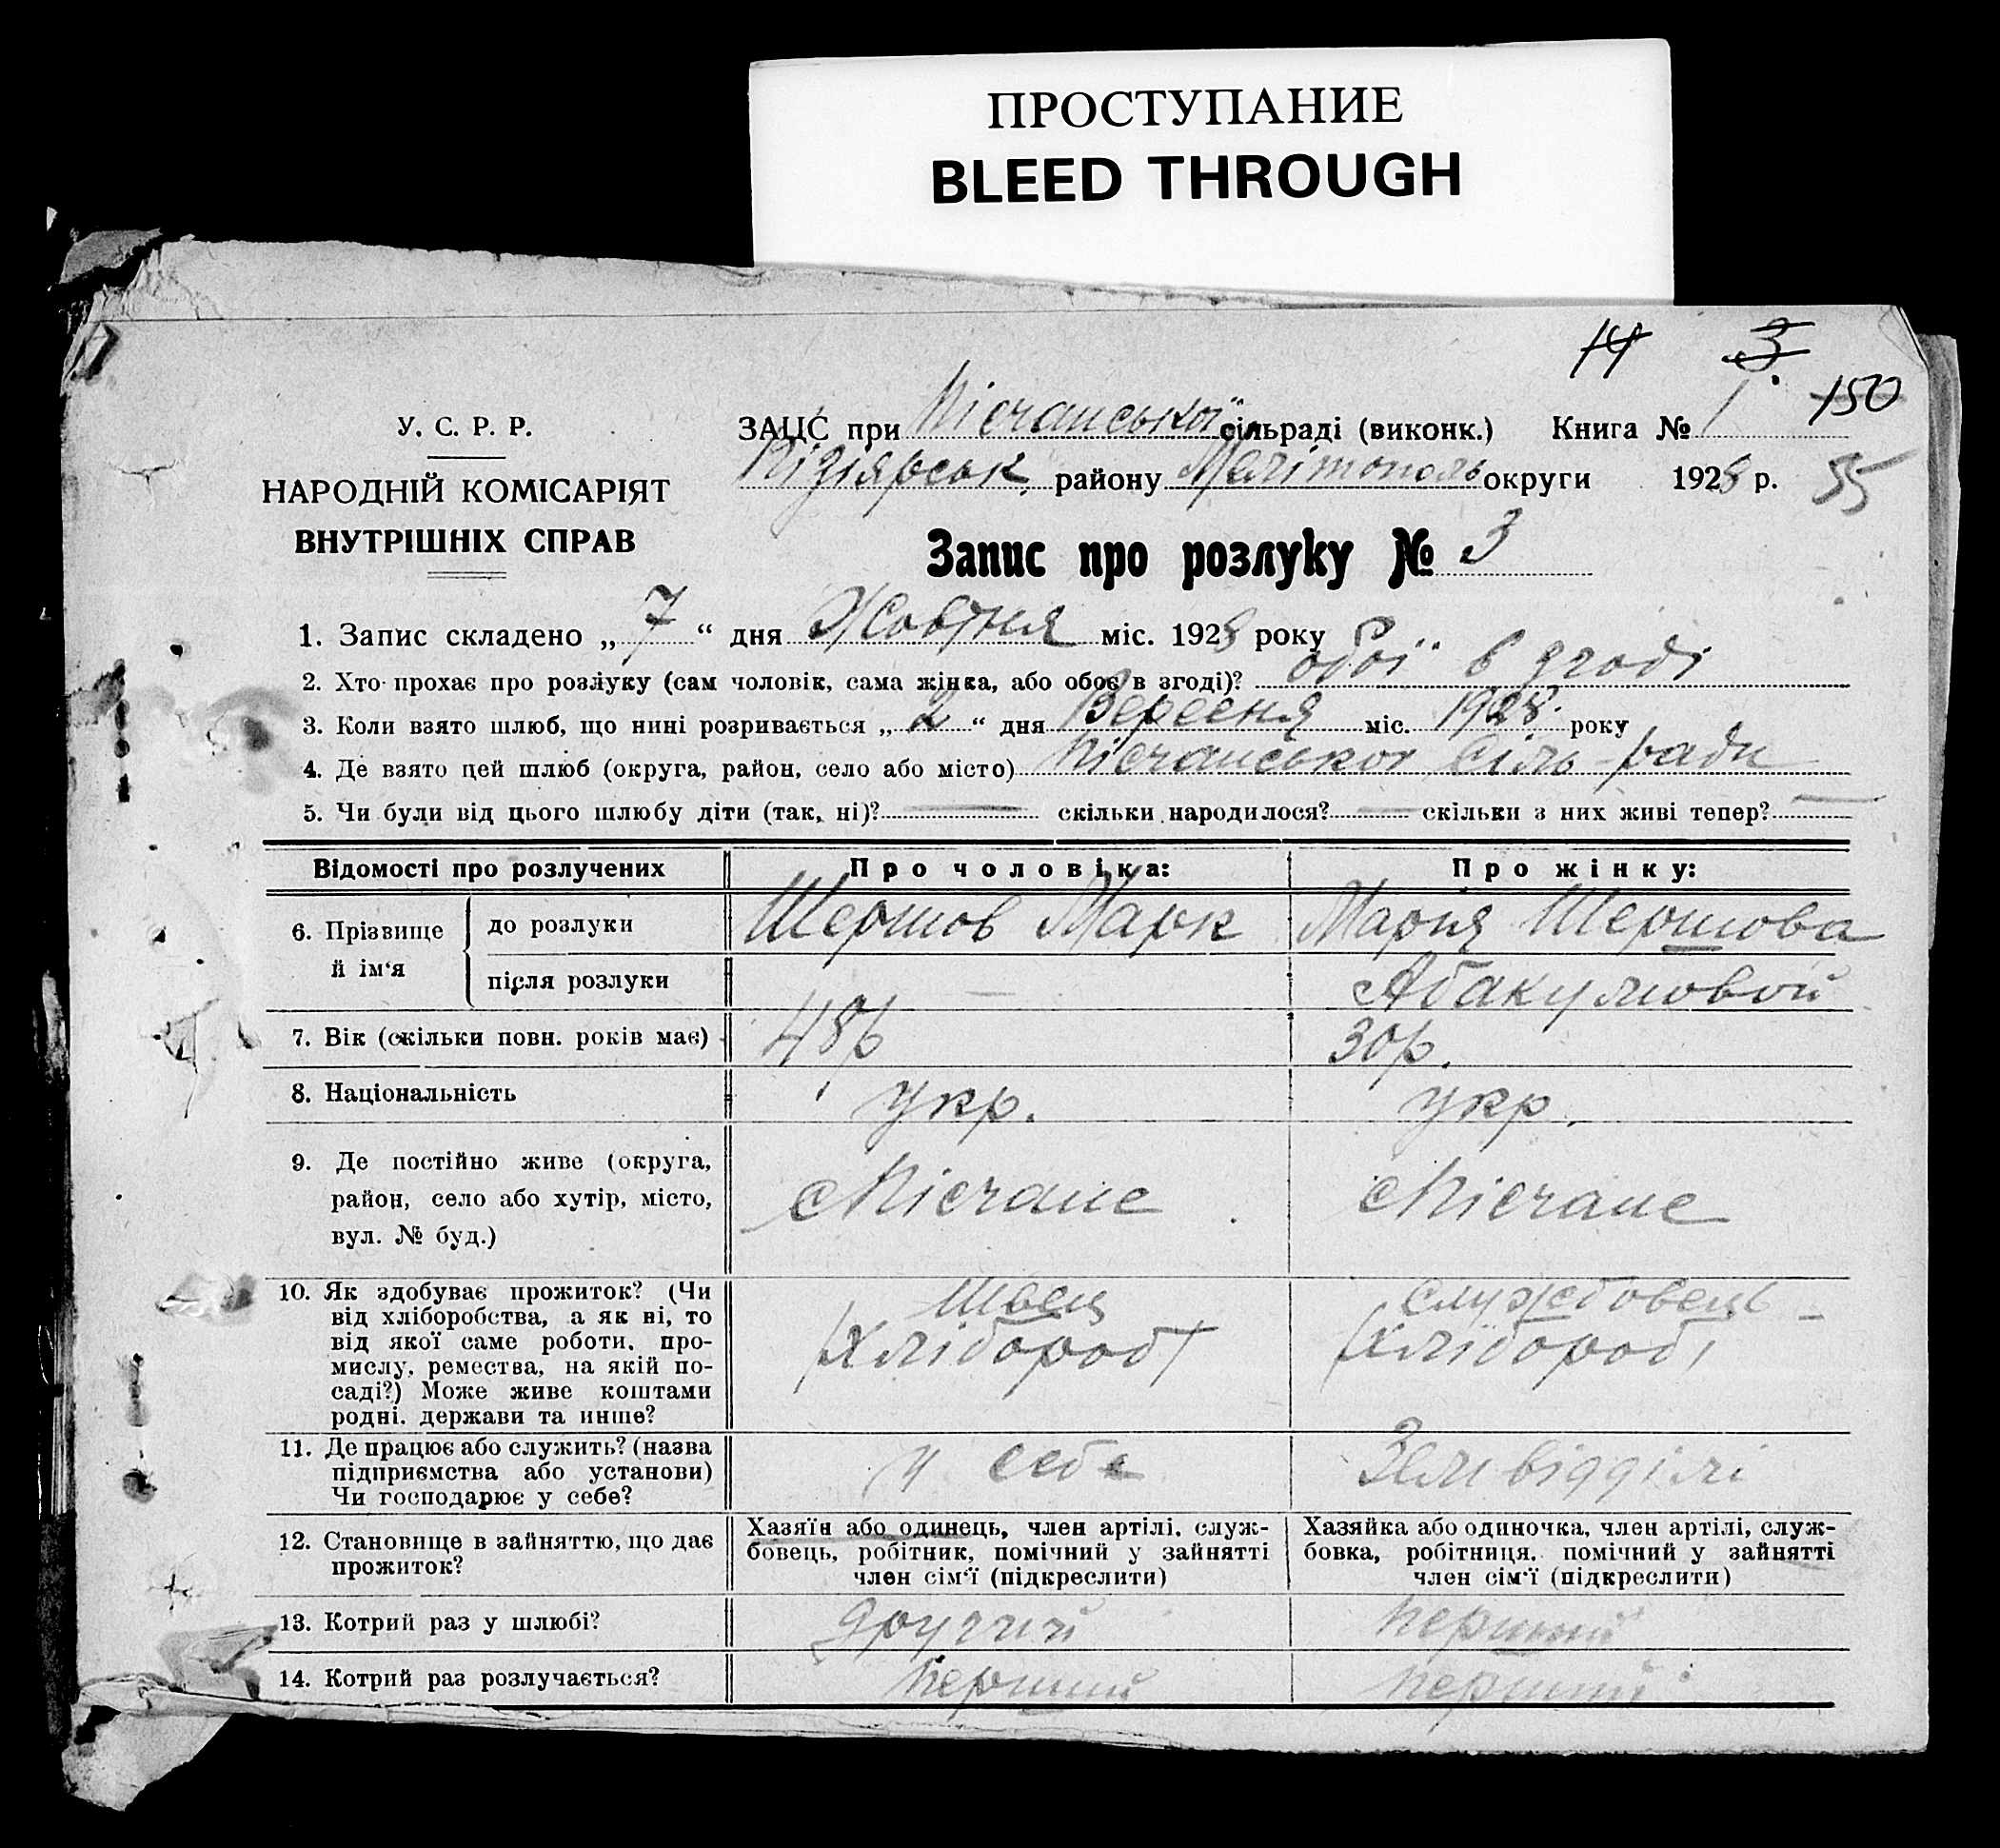 ПРОСТУПАНИЕ
BLEED THROUGH
14 3
У. С. Р. Р.
НАРОДНІЙ КОМІСАРІЯТ
ВНУТРІШНІХ СПРАВ
ЗАЦС при Пісчанської сільраді (виконк.) Книга № 1 150
району Мелітополь округи 1928 р. 55
Запис про розлуку № 3
1. Запис складено „ 7 “ дня Жовтня міс. 1928 року
2. Хто прохає про розлуку (сам чоловік, сама жінка, або обоє в згоді)? обої в згоді
3. Коли взято шлюб, що нині розривається „ 2 “ дня Вересня міс. 1928 року
4. Де взято цей шлюб (округа, район, село або місто) Пісчанськой Сіль-ради
5. Чи були від цього шлюбу діти (так, ні)? — скільки народилося? — скільки з них живі тепер? —
Відомості про розлучених Про чоловіка: Про жінку:
6. Прізвище й ім‘я
до розлуки Шершов Марк Мария Шершова
після розлуки — Абакумовой
7. Вік (скільки повн. років має) 48р 30р.
8. Національність укр. укр.
9. Де постійно живе (округа,
район, село або хутір, місто,
вул. № буд.)
с Пісчане с Пісчане
10. Як здобуває прожиток? (Чи
від хліборобства, а як ні, то
від якої саме роботи, про-
мислу, ремества, на якій по-
саді?) Може живе коштами
родні, держави та инше?
швец службовець -
/хлібороб/ /хлібороб/
11. Де працює або служить? (назва
підприємства або установи)
Чи господарює у себе?
у себеЗемвідділі
12. Становище в зайняттю, що дає
прожиток?
Хазяїн або одинець, член артілі, служ-
бовець, робітник, помічний у зайнятті
член сім‘ї (підкреслити)
Хазяйка або одиночка, член артілі, служ-
бовка, робітниця, помічний у зайнятті
член сім‘ї (підкреслити)
13. Котрий раз у шлюбі? другий перший
14. Котрий раз розлучається? перший перший